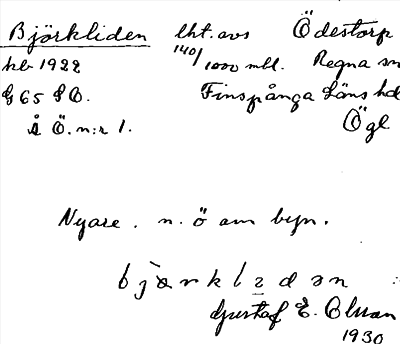 Björkliden lht. avs Ödestorp
kb 1922 140/1000 mbl. Regna sn
G 65 SO. Finspånga läns hd
å Ö. n:r 1. Ögl
Nyare. n. ö om byn.
bjærklɩdən
Gustaf E. Olsson
1930